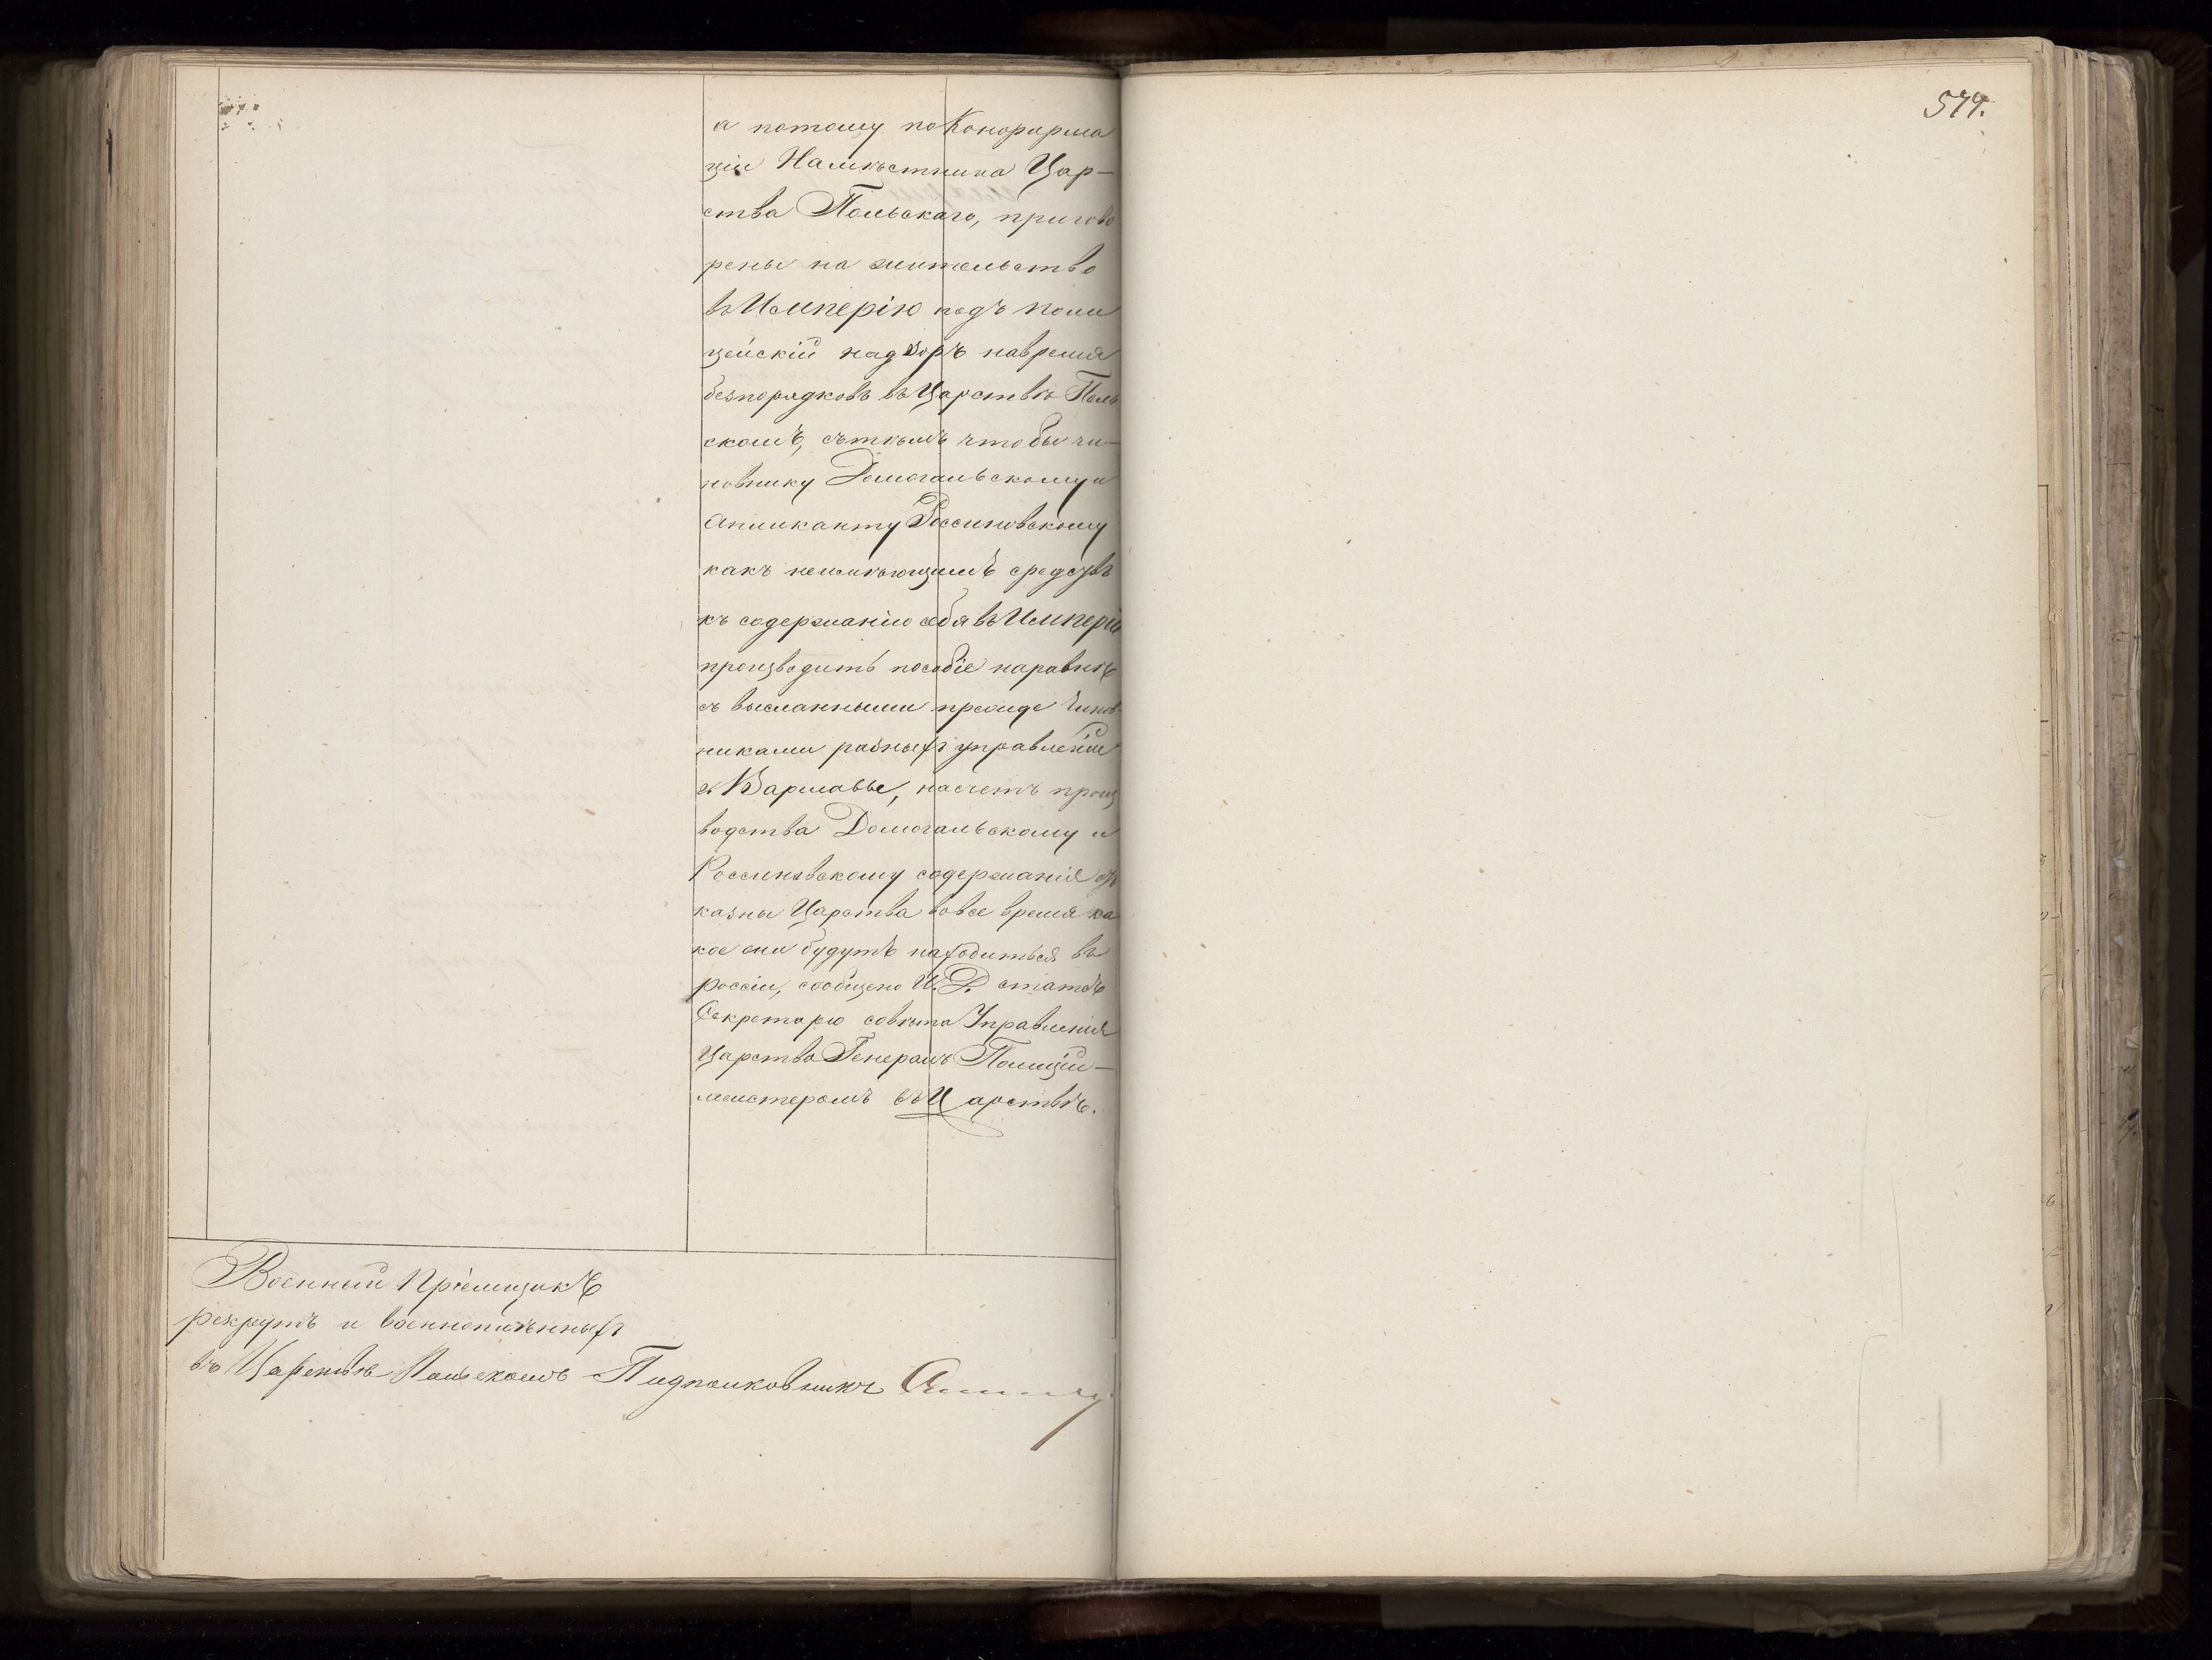 а потому по Конфирма
ціи Намѣстника Цар-
ства Польскаго, пригово
рены на жительство
въ Имперію подъ поли
цейскій надзоръ на время
безпорядковъ въ Царствѣ Поль
скомъ, съ тѣмъ чтобы чи-
новнику Домогальскому и
Апликанту Россиновскому
какъ неимѣющимъ средствъ
къ содержанію себя въ Имперіи
производить пособіе наравнѣ
съ высланными прежде Чинов-
никами разныхъ управленій
въ Варшавѣ, насчетъ произ
водства Домогальскому и
Россиновскому содержанія отъ
казны Царства во все время ка
кое они будутъ находиться въ
россіи, сообщено И. Д. статсъ
Секретарю совѣта Управленія
Царства Генералъ Полиціи-
мейстеромъ въ Царствѣ.
Военный Пріемщикъ
рекрутъ и военноплѣнныхъ
въ Царствѣ Польскомъ Подполковникъ
574.